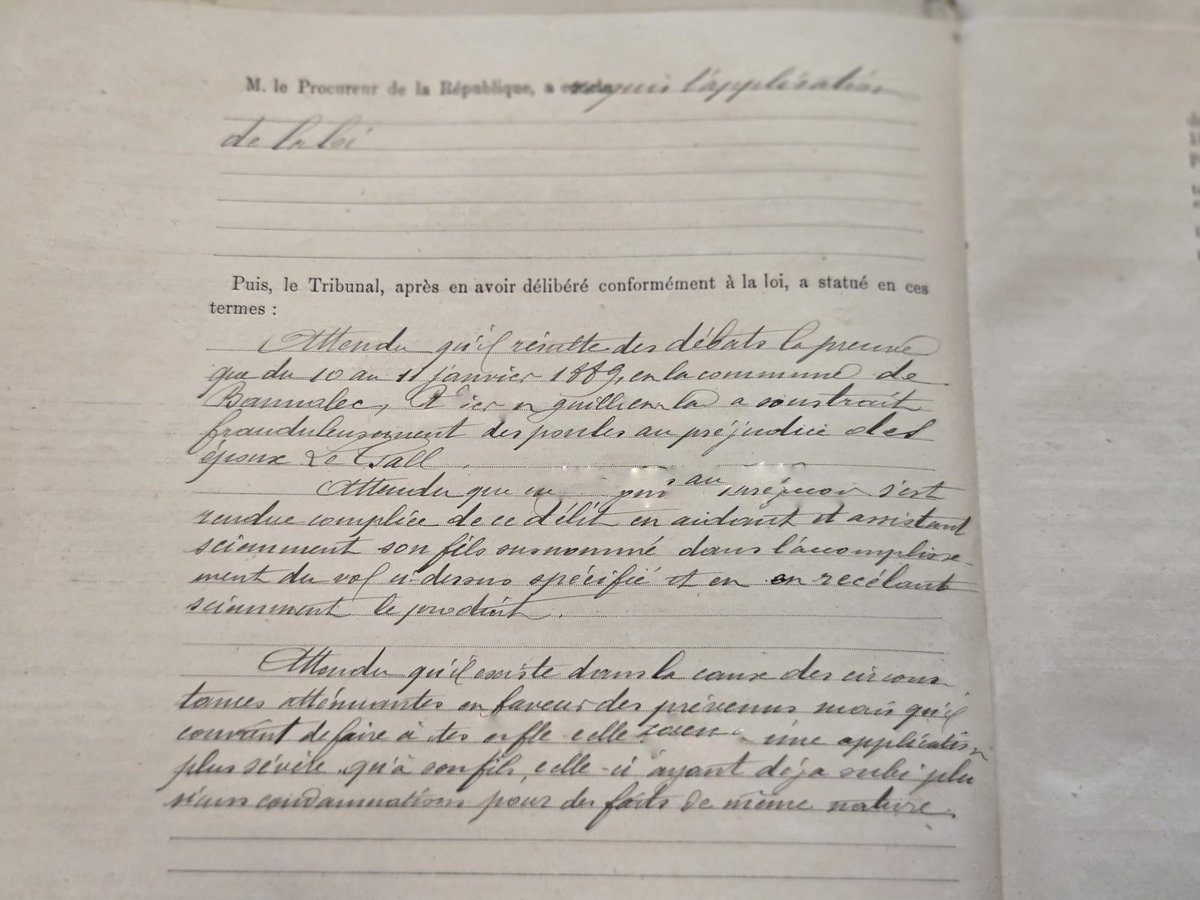 M. le Procureur de la République, a requis l'application
de la loi
Puis, le Tribunal, après en avoir délibéré conformément à la loi, a statué en ces
termes :
Attendu qu'il résulte des débats la preuve
que du 10 au 11 janvier 1889, en la commune de
Bannalec, a soustrait
frauduleusement des poules au préjudice des
époux Le Gall.
Attendu que s'est
rendue complice de ce délit en aidant et assistant
sciemment son fils susnommé dans l'accomplisse-
ment du vol ci-dessus spécifié et en en recélant
sciemment le produit.
Attendu qu'il existe dans la cause des circons-
tances atténuantes en faveur des prévenus mais qu'il
convient de faire à celle une application
plus sévère qu'à son fils, celle-ci ayant déjà subi plu
sieurs condamnations pour des faits de même nature.